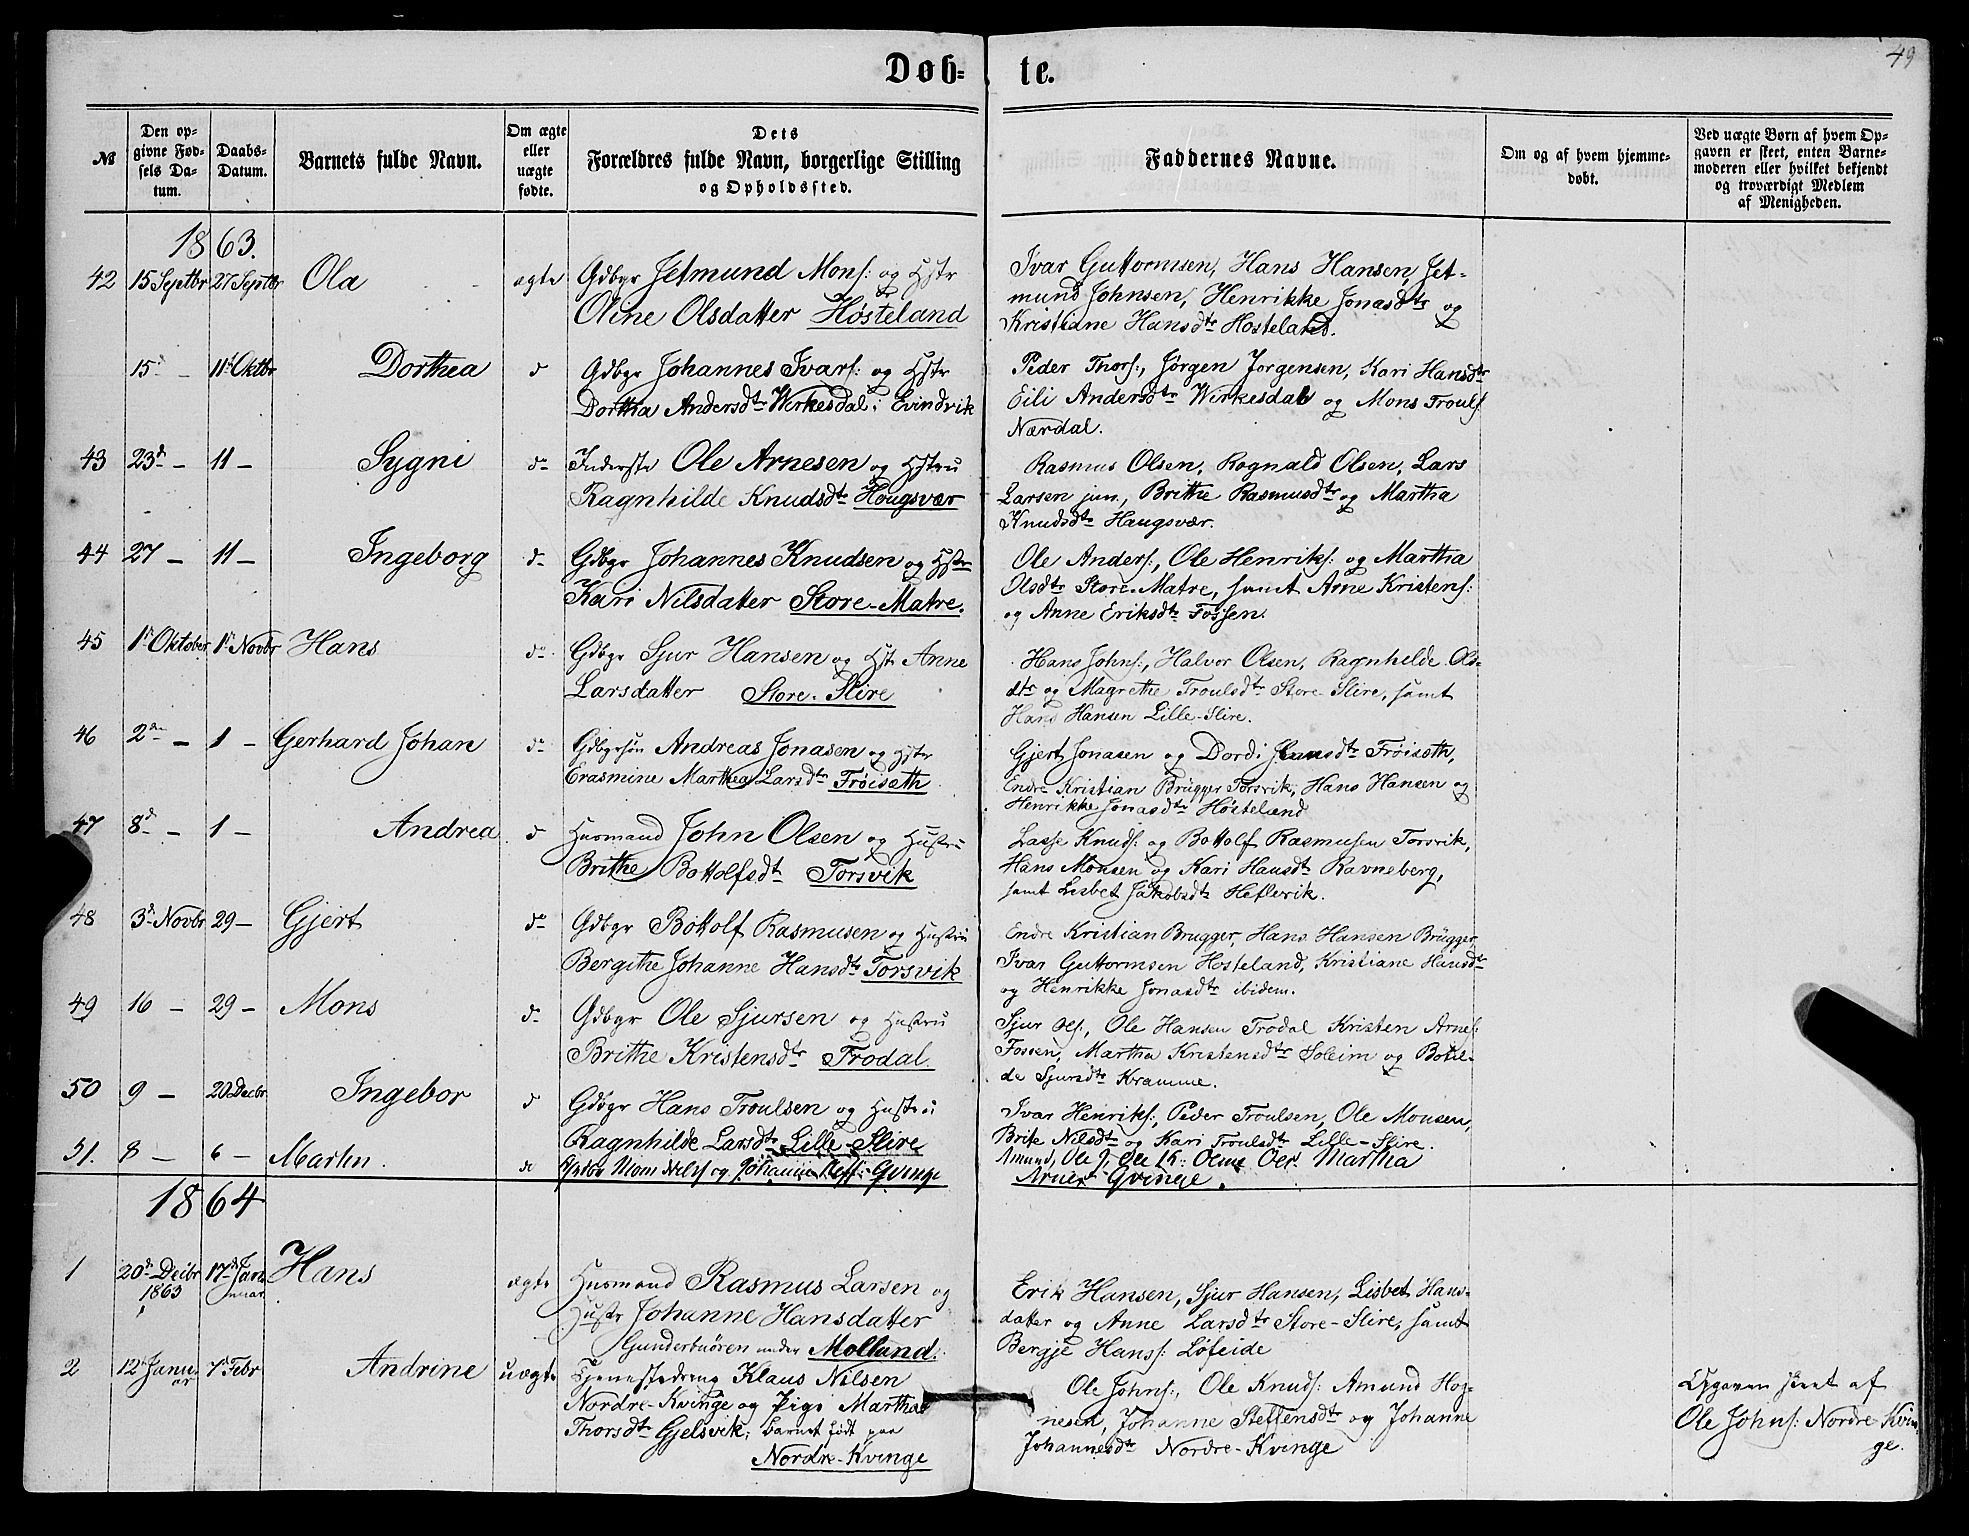 49
Døb- te.
№
Den op-
givne Fød-
sels Da-
tum.
Daabs-
Datum.
Barnets fulde Navn.
Om ægte
eller
uægte
fødte.
Dets
Forældres fulde Navn, borgerlige Stilling
og Opholdssted.
Faddernes Navne.
Om og af hvem hjemme-
døbt.
Ved uægte Børn af hvem Op-
gaven er skeet, enten Barne-
moderen eller hvilket bekjendt
og troværdigt Medlem
af Menigheden.
1863.
42 15 Septbr 27 Septbr Ola ægte Gdbgr Jetmund Mons: og Hstr
Oline Olsdatter Høsteland
Ivar Guttormsen, Hans Hansen, Jet-
mund Johnsen, Henrikke Jonasdtr og
Kristiane Hansdtr Hosteland.
15d - 11te Oktbr Dorthea d Gdbgr Johannes Ivars: og Hstr
Dortha Andersdtr Wirkesdal i Evindvik
Peder Thors:, Jørgen Jørgensen, Kari Hansdtr
Eili Andersdtr Wirkesdal og Mons Trouls:
Nærdal.
43 23d - 11 - Sygni do Inderste Ole Arnesen og Hstru
Ragnhilde Knudsdtr Hougsvær
Rasmus Olsen, Rognald Olsen, Lars
Larsen jun., Brithe Rasmusdtr og Martha
Knudsdtr Haugsvær.
44 27 - 11 - Ingeborg do Gdbgr Johannes Knudsen og Hstr
Kari Nilsdatter Store-Matre.
Ole Anders:, Ole Henriks: og Martha
Olsdtr Store-Matre, samt Arne Kristens:
og Anne Eriksdtr Fossen.
45 1ste Oktober 1ste Novbr Hans do Gdbgr Sjur Hansen og Hstr Anne
Larsdatter Store-Slire
Hans Johns:, Halvor Olsen, Ragnhelde Ols-
dtr og Magrethe Troulsdtr Store-Slire, samt
Hans Hansen Lille-Slire.
46 2den - 1 - Gerhard Johan do Gdbgrsøn Andreas Jonasen og Hstr
Erasmine Marthea Larsdtr Frøisæth
Gjert Jonasen og Dordi Hansdtr Frøisæth,
Endre Kristian Brügger Torsvik, Hans Hansen og
Henrikke Jonasdtr Høsteland
47 8d - 1 - Andrea d Husmand John Olsen og Hustru
Brithe Bottolfsdtr Torsvik
Lasse Knuds: og Bottolf Rasmusen Torsvik,
Hans Monsen og Kari Hansdtr Ravneberg,
samt Lisbet Jakobsdtr Heflevik.
48 3d Novbr 29 - Gjert do Gdbgr Bottolf Rasmusen og Hustru
Bergithe Johanne Hansdtr Torsvik
Endre Kristian Brugger, Hans Hansen Brügger,
Ivar Guttormsen Hosteland, Kristiane Hansdtr
og Henrikke Jonasdtr ibidem.
49 16 - 29 - Mons do Gdbgr Ole Sjursen og Hustru
Brithe Kristensdtr Trodal.
Sjur Ols:, Ole Hansen Trodal Kristen Arnes:
Fossen, Martha Kristensdtr Soleim og Botil-
de Sjursdtr Kramme.
50 9 - 20 Decbr Ingebor d Gdbgr Hans Troulsen og Hustru
Ragnhilde Larsdtr Lille-Slire
Ivar Henriks:, Peder Troulsen, Ole Monsen,
Brite Nilsdtr og Kari Troulsdtr Lille-Slire.
51. 8 - 6 - Martin. do Mons og Johanne Qvinge
Amund, Ole Martha
Qvinge.
1864
1 20de Decbr 17de Jan- Hans ægte Husmand Rasmus Larsen og
1863 nuar
Hustr Johanne Hansdatter
Gunderbuøren under Molland.
Erik Hansen, Sjur Hansen, Lisbet Hans-
datter og Anne Larsdtr Store-Slire, samt
Bergje Hans: Løfeide
2 12te Janu- 7de Febr Andrine uægte Tjenestedreng Klaus Nilsen
ar
Nordre-Kvinge og Pige Martha
Thorsdtr Gjelsvik; Barnet født paa
Nordre-Kvinge
Ole Johns:, Ole Knuds: Amund Hog-
nesen, Johanne Steffensdtr og Johanne
Johannesdtr Nordre-Kvinge
Opgaven skeet af
Ole Johns: Nordre-Kvin-
ge.